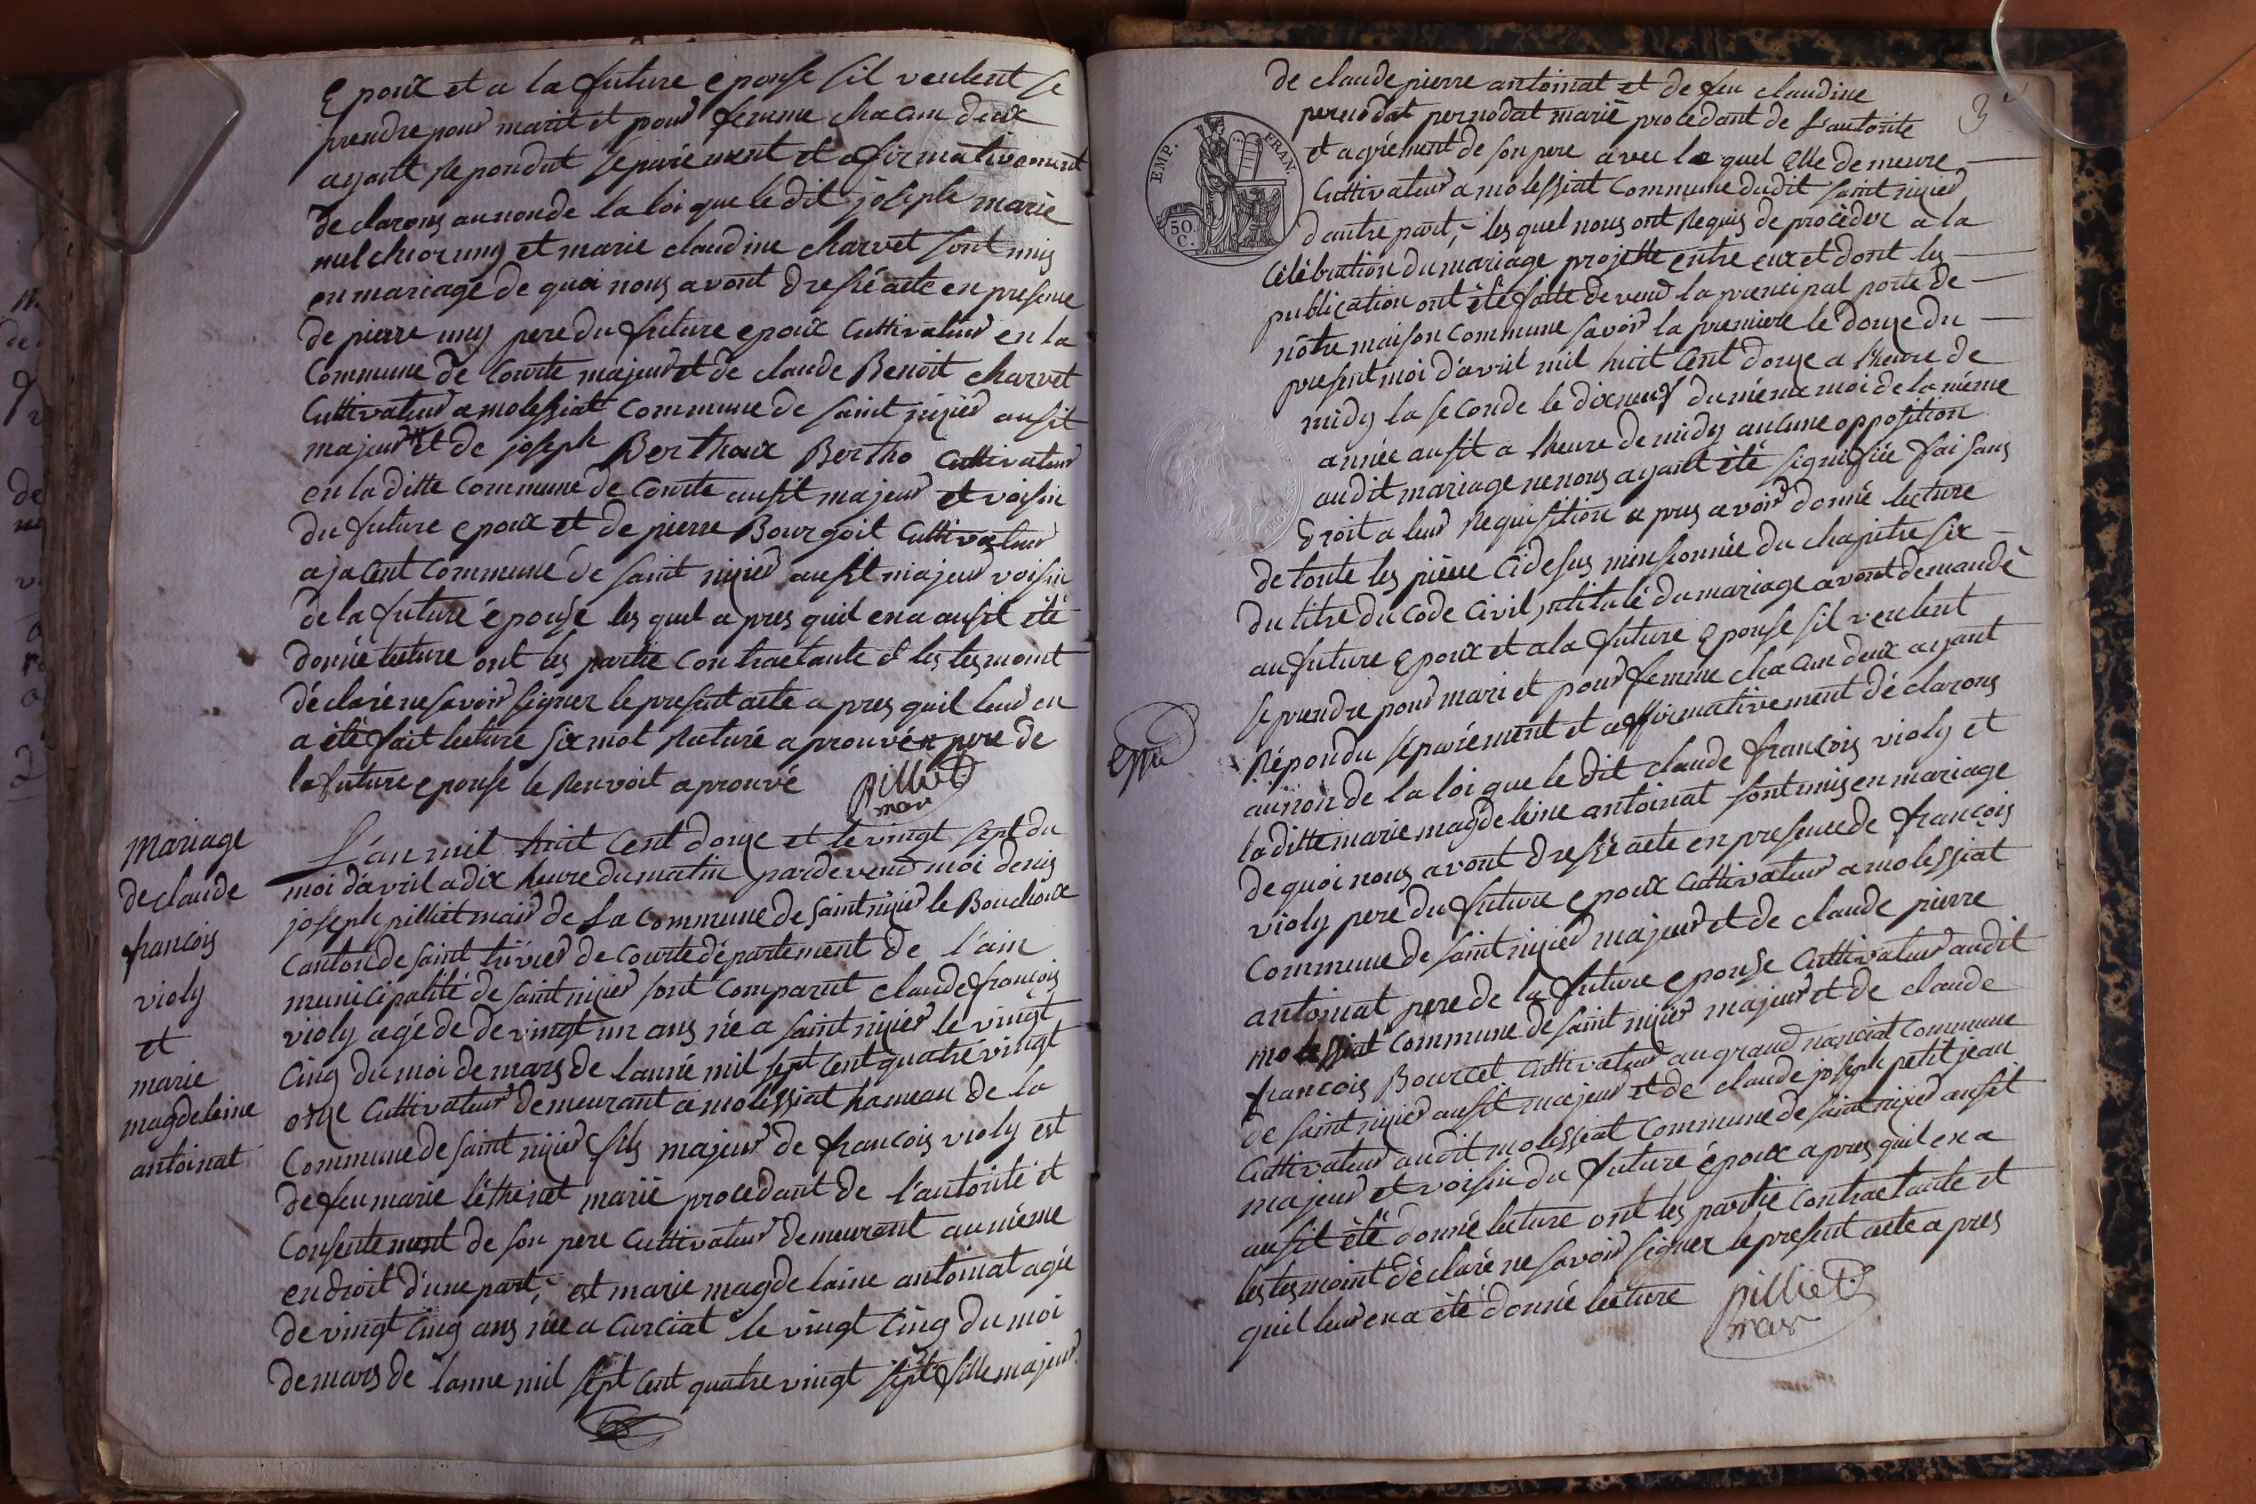 Epoux et a la future epouse sil veulent se
prendre pour marit et pour femme chacun deux
ayant Repondut séparément et afirmativement
declarons aunonde la loi que ledit joseph marie
melchior uny et marie claudine charvet sont unis
en mariage de quoi nous avont dressé acte en presence
de pierre uny pere du future epoux Cultivateur en la
Commune de Courte majeur et de claude Benoit charvet
Cultivateur a molessiat commune de saint nizier ausit
majeur et de joseph Berthoux Bertho Cultivateur
en la ditte commune de Courte ausit majeur et voisin
du future epoux et de pierre Bourgoit Cultivateur
a jacent commune de saint nizier ausit majeur voisin
de la future épouse les quel apres quil en a ausit été
donnée lecture ont les partie Contractante et les tesmoint
déclaré ne savoir signer le present acte apres quil leur en
a été fait lecture six mot Raturé aprouvé pere de
la future epouse le Renvoit aprouvé pilliet
mair
mariage
de claude
françois
violy
et
marie
magdeleine
antoinat
L'an mil huit Cent douze et le vingt sept du
moi d'avril a dix heure du matin pardevent moi denis
joseph pilliet mair de la commune de saint nizier le Bouchoux
canton de saint trivier de Courte département de l'ain
municipalité de saint nizier sont comparut claude françois
violy agé de de vingt un ans né a saint nizier le vingt
Cinq du moi de mars de lanné mil sept cent quatre vingt
onze Cultivateur demeurant a molissiat hameau de la
Commune de saint nizier fils majeur de françois violy est
de feu marie léthenet marié procedant de l'autorité et
Consentement de son pere Cultivateur demeurant au même
endroit d'une part, est marie magdelaine antoinat agée
de vingt Cinq ans née a Curciat le vingt Cinq du moi
de mars de lanne mil sept Cent quatre vingt sept fille majeur
3
EMP. FRAN.
50
C.
de claude pierre antoinat et de feu claudine
pernodat pernodat marié procedant de l'autorite
et agrément de son pere avec le quel elle demeure
Cultivateur a molessiat Commune dudit saint nizier
d'autre part, les quel nous ont Requis de procéder a la
Célébration du mariage projette entre eux et dont les
publication ont été faitte devend la principal porte de
nôtre maison commune savoir la premiere le douze du
present moi d'avril mil huit Cent douze a l'heure de
midy la seconde le dix neuf du même moi de la même
année ausit a lheure de midy aucune opposition
audit mariage ne nous ayant été signifiée faisans
droit a leur Requisition apres avoir donné lecture
de toute les pièce Cidesus mensionnée du chapitre six
du titre du Code Civil intitulé du mariage avont demandé
au future Epoux et a la future Epouse sil veulent
se prendre pour mari et pour femme chacun deux ayant
Répondu séparément et affirmativement déclarons
aunon de la loi que le dit claude françois violy et
la ditte marie magdeleine antoinat sont unis en mariage
de quoi nous avont dressé acte en presence de françois
violy pere du future epoux Cultivateur a molessiat
Commune de saint nizier majeur et de claude pierre
antoinat pere de la future epouse Cultivateur audit
molessiat Commune de saint nizier majeur et de claude
françois Bourcet Cultivateur au grand nanciat commune
de saint nizier ausit majeur et de claude joseph petit jean
Cultivateur audit molissiat Commune de saint nizier ausit
majeur et voisin du future époux apres quil en a
ausit été donnée lecture ont les partie Contractante et
les tesmoint déclaré ne savoir signer le present acte apres
quil leur en a été donné lecture pilliet
mair